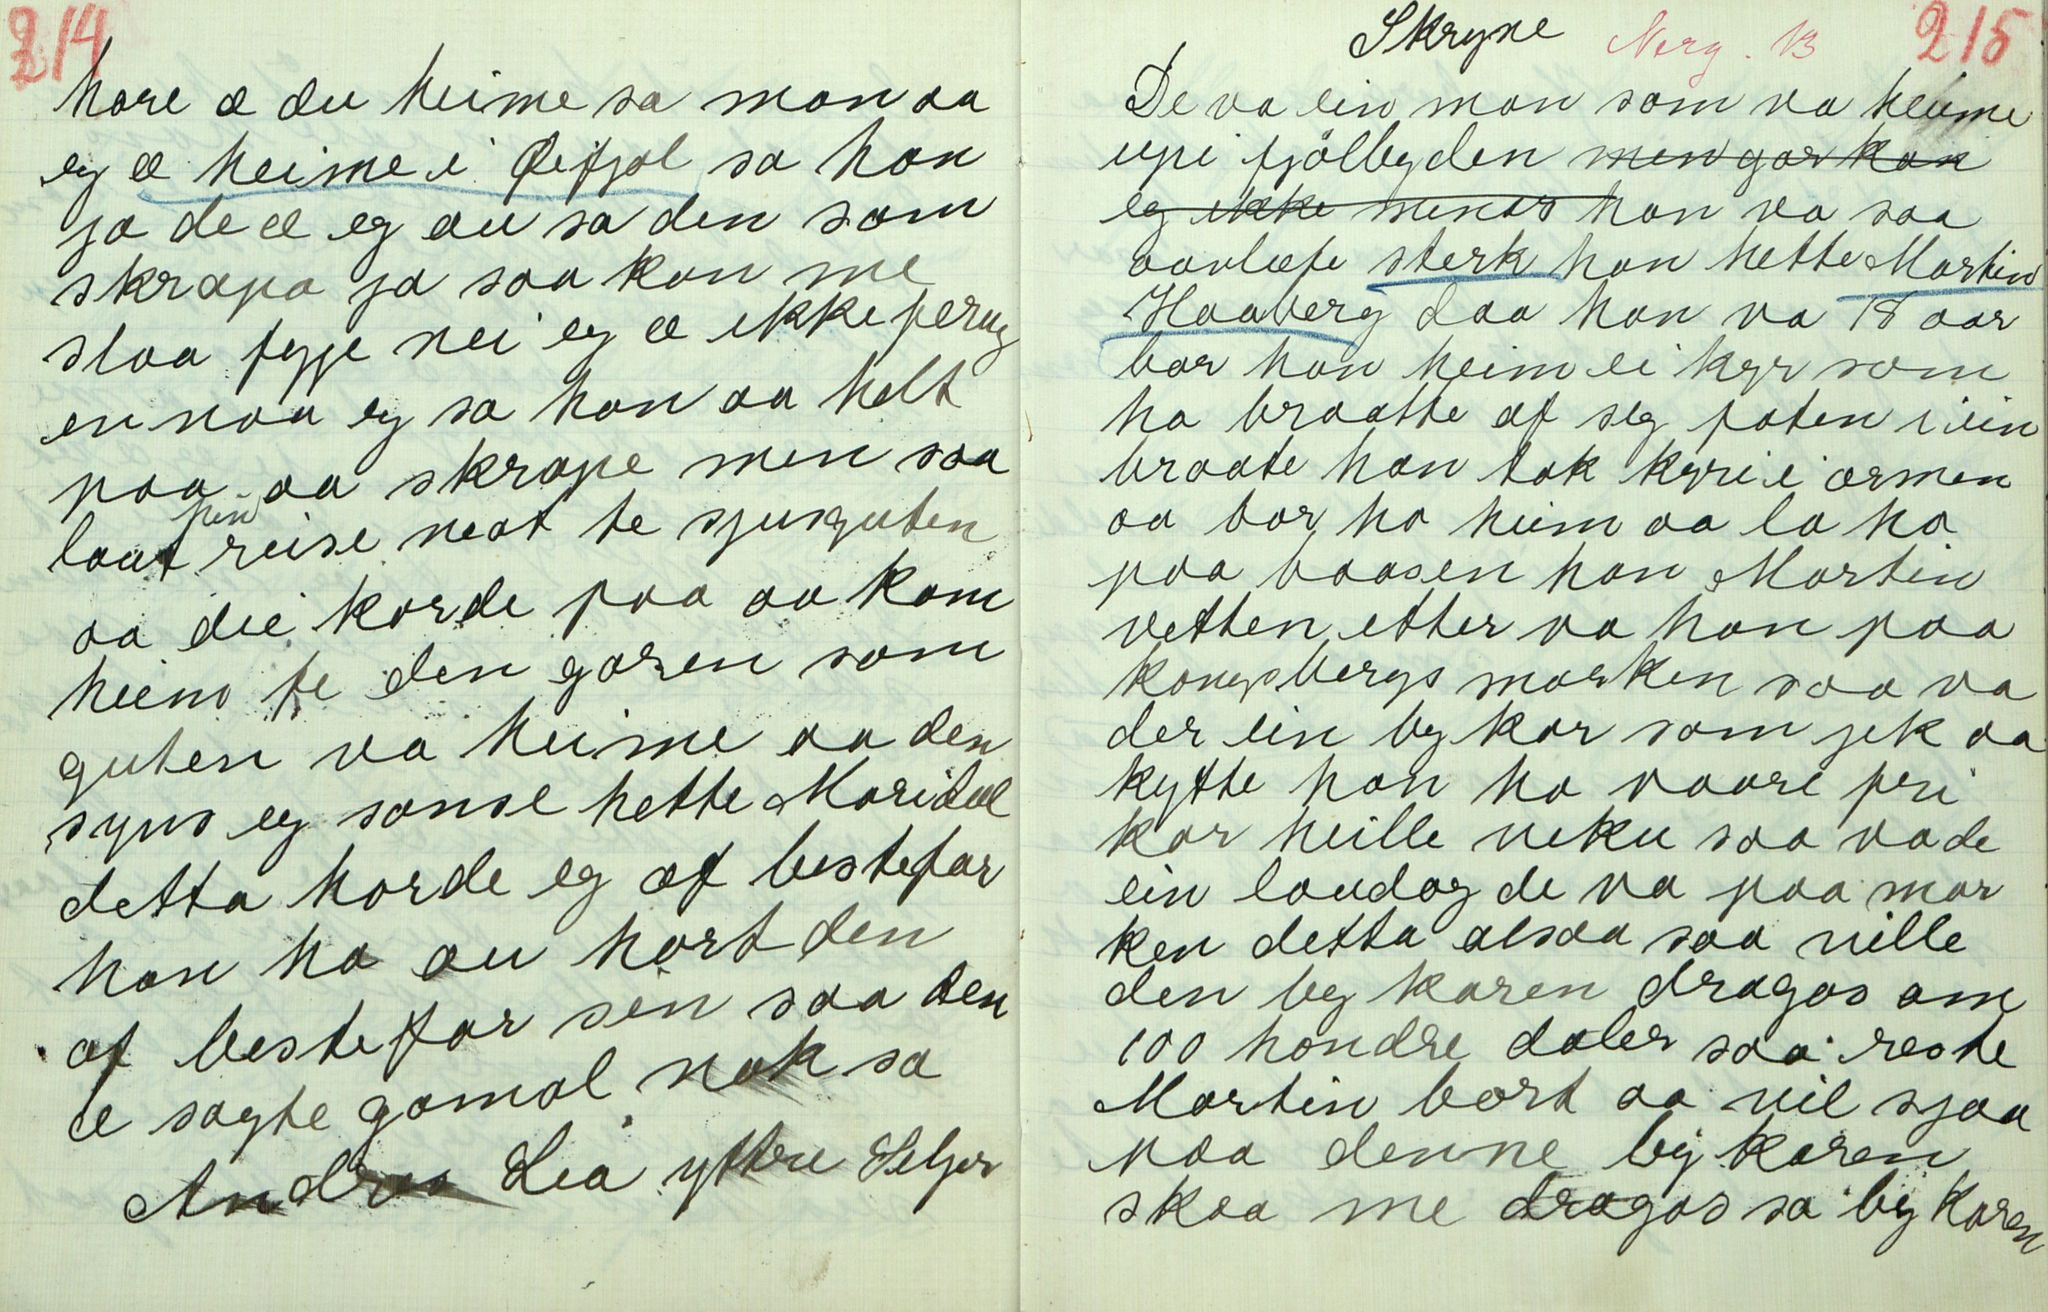 214
hore æ du heime sa mon aa
eg æ heime i Øifjol sa han
ja de æ eg au sa den som
skrapa ja saa kan me
slaa fygje nei eg æ ikke ferug
en naa eg sa han aa helt
paa aa skrape men saa
laut fin reise neat te sjusguten
aa dei korde paa aa kom
heim te den garen som
guten va heime aa den
syns eg sanse hette Maridal
detta horde eg af bestefar
han ha au hort den
af bestefar sin saa den
æ sagte gamal nok sa
Andres Lia yttre Seljor
215
Skryne Norg. 13
De va ein man som va heime
upi fjölbygden men gar kan
eg ikke minas han va saa
aavlæfe sterk han hette Martin
Haaberg daa han va 18 aar
bar han heim ei kyr som
ha braatte af seg foten i ein
braate han tok kyri i armen
aa bar ho heim aa la ho
paa baasen han Martin
vetten etter va han paa
kongsbergs marken saa va
der ein by kar som jek aa
kytte han ha vaare fri
kar heille veku saa va de
ein laudag de va paa mar
ken detta alsaa saa ville
den by karen dragas om
100 hondre daler saa reste
Martin bort aa vil sjaa
paa denne by karen
skaa me dragas sa by karen